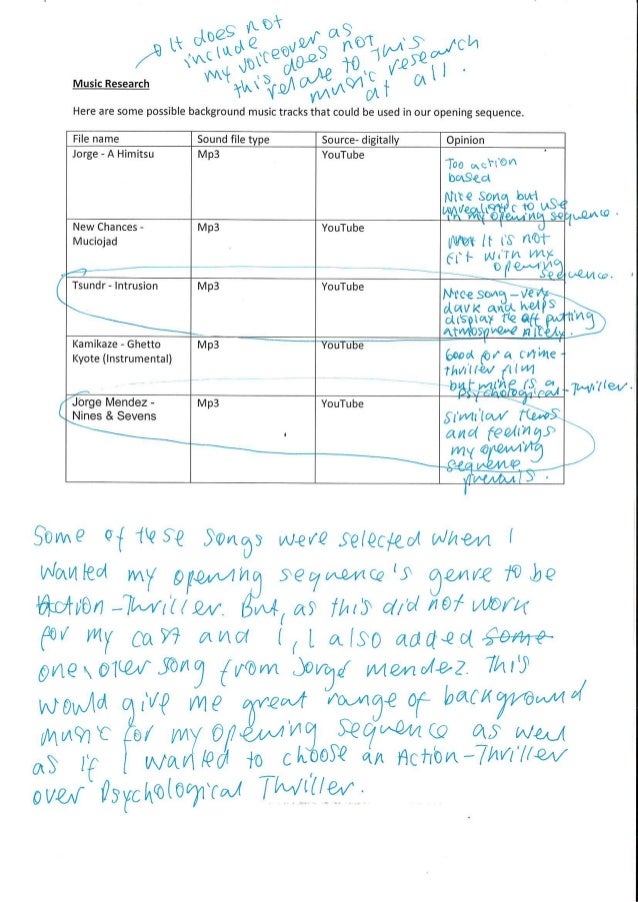 It does not
include
my voiceover as
this does not
relate to this
music research
at all.
Music Research
Here are some possible background music tracks that could be used in our opening sequence.
File name Sound file type Source- digitally Opinion
Jorge - A Himitsu Mp3 YouTube
Too action
based
Nice song but
unrealistic to use
in my opening sequence.
New Chances -
Muciojad
Mp3 YouTube
It is not
fit with my
opening
sequence.
Tsundr - Intrusion Mp3 YouTube
Nice song - very
dark and helps
display the off putting
atmosphere nicely.
Kamikaze - Ghetto
Kyote (Instrumental)
Mp3 YouTube
Good for a crime-
thriller film
but mine is a
psychological-thriller.
Jorge Mendez -
Nines & Sevens
Mp3 YouTube
Similar
and feelings
my opening
sequence
Some of these songs were selected when I
wanted my opening sequence's genre to be
Action-Thriller. But, as this did not work
for my cast and I, I also added some
one other song from Jorge Mendez. This
would give me great range of background
music for my opening sequence as well
as if I wanted to choose an Action-Thriller
over Psychological Thriller.